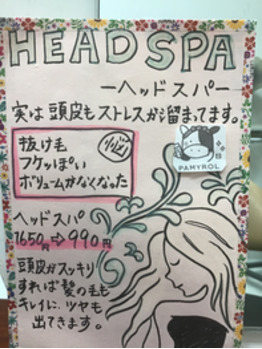 HEAD SPA
ーヘッドスパー
実は頭皮もストレスが溜まってます。
悩
抜け毛
フケっぽい
ボリュームがなくなった
PAMYROL
ヘッドスパ
1650円⇒990円
頭皮がスッキリ
すれば髪の毛も
キレイに、ツヤも
出てきます。